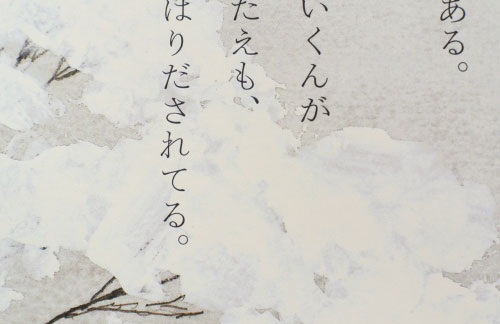 ある。
いくんが
たえも、
ほりだされてる。